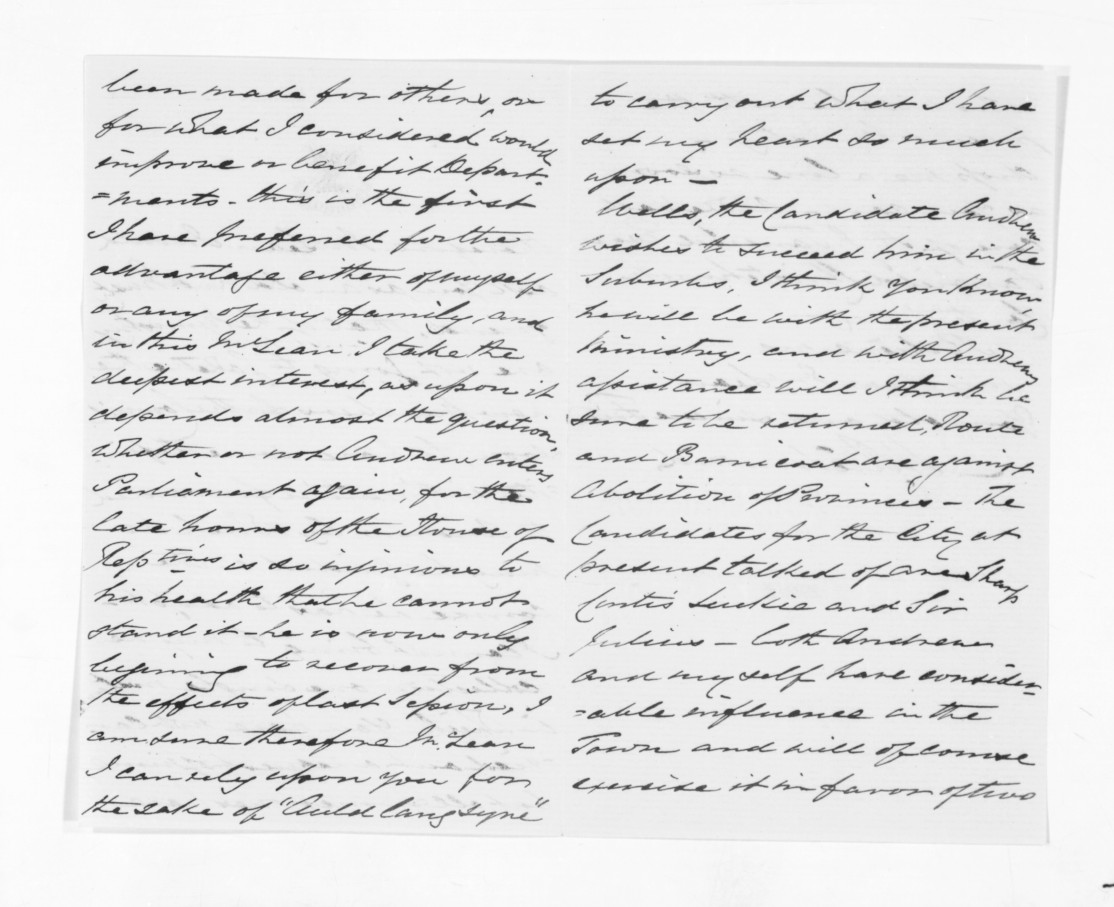 been made for others, or
for what I considered would
improve or benefit Depart-
=ments - this is the first
I have preferred for the
advantage either of myself
or any of my family, and
in this McLean I take the
deepest interest, as upon it
depends almost the question,
whether or not Andrew enters
Parliament again, for the
late hours of the House of
Reptives is so injurious to
his health that he cannot
stand it - he is now only
begining to recover from
the effects of last Session, I
am sure therefore McLean
I can rely upon you for
the sake of "Auld lang syne"
to carry out what I have
set my heart so much
upon -
Wells, the Candidate Andrew
wishes to succeed him in the
Suburbs, I think you know,
he will be with the present
Ministry, and with Andrews
assistance will I think be
sure to be returned, Route
and Barnicoat are against
Abolition of Provinces - The
Candidates for the City at
present talked of are Sharp
Curtis Luckie and Sir
Julius - both Andrew
and myself have consider-
=able influence in the
Town and will of course
exersise it in favor of two